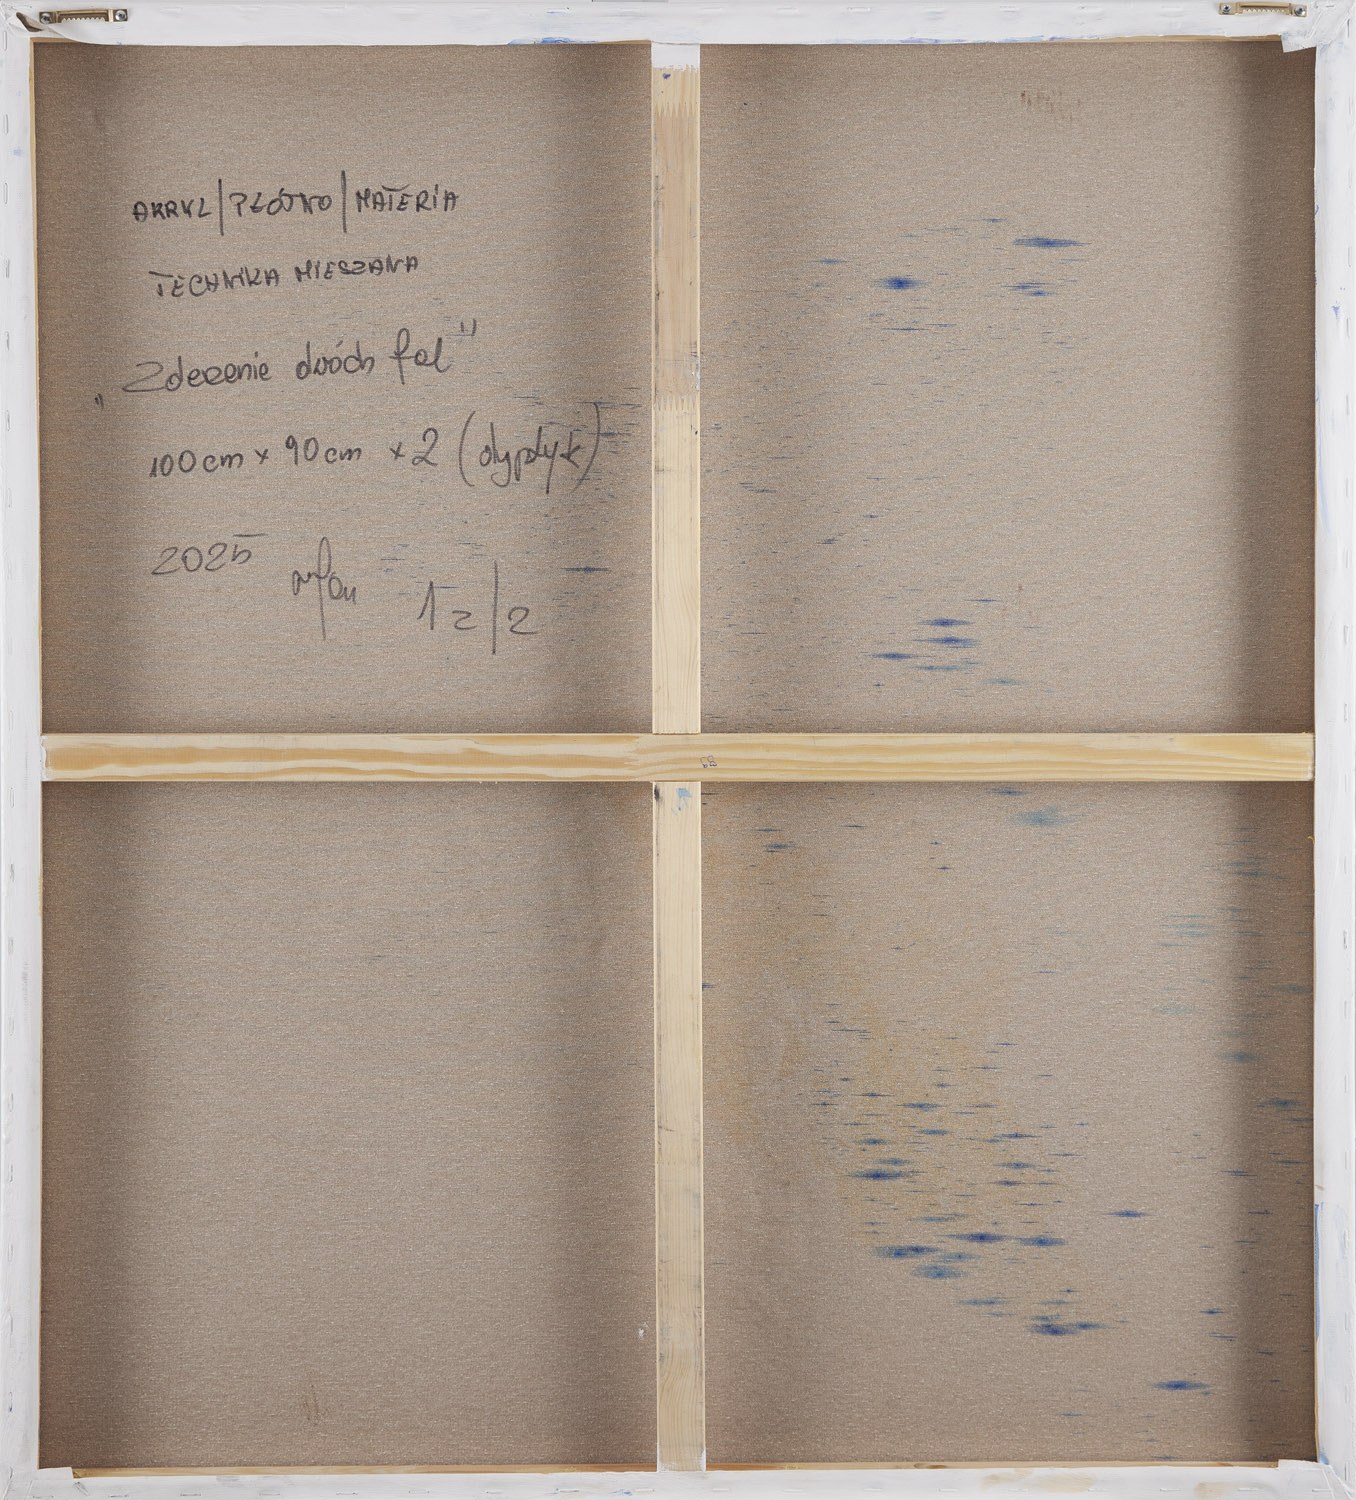 AKRYL|PŁÓTNO|MATERIA
TECHNIKA MIESZANA
"Zderzenie dwóch fal"
100cm x 90cm x 2 (dyptyk)
2025 1z|2